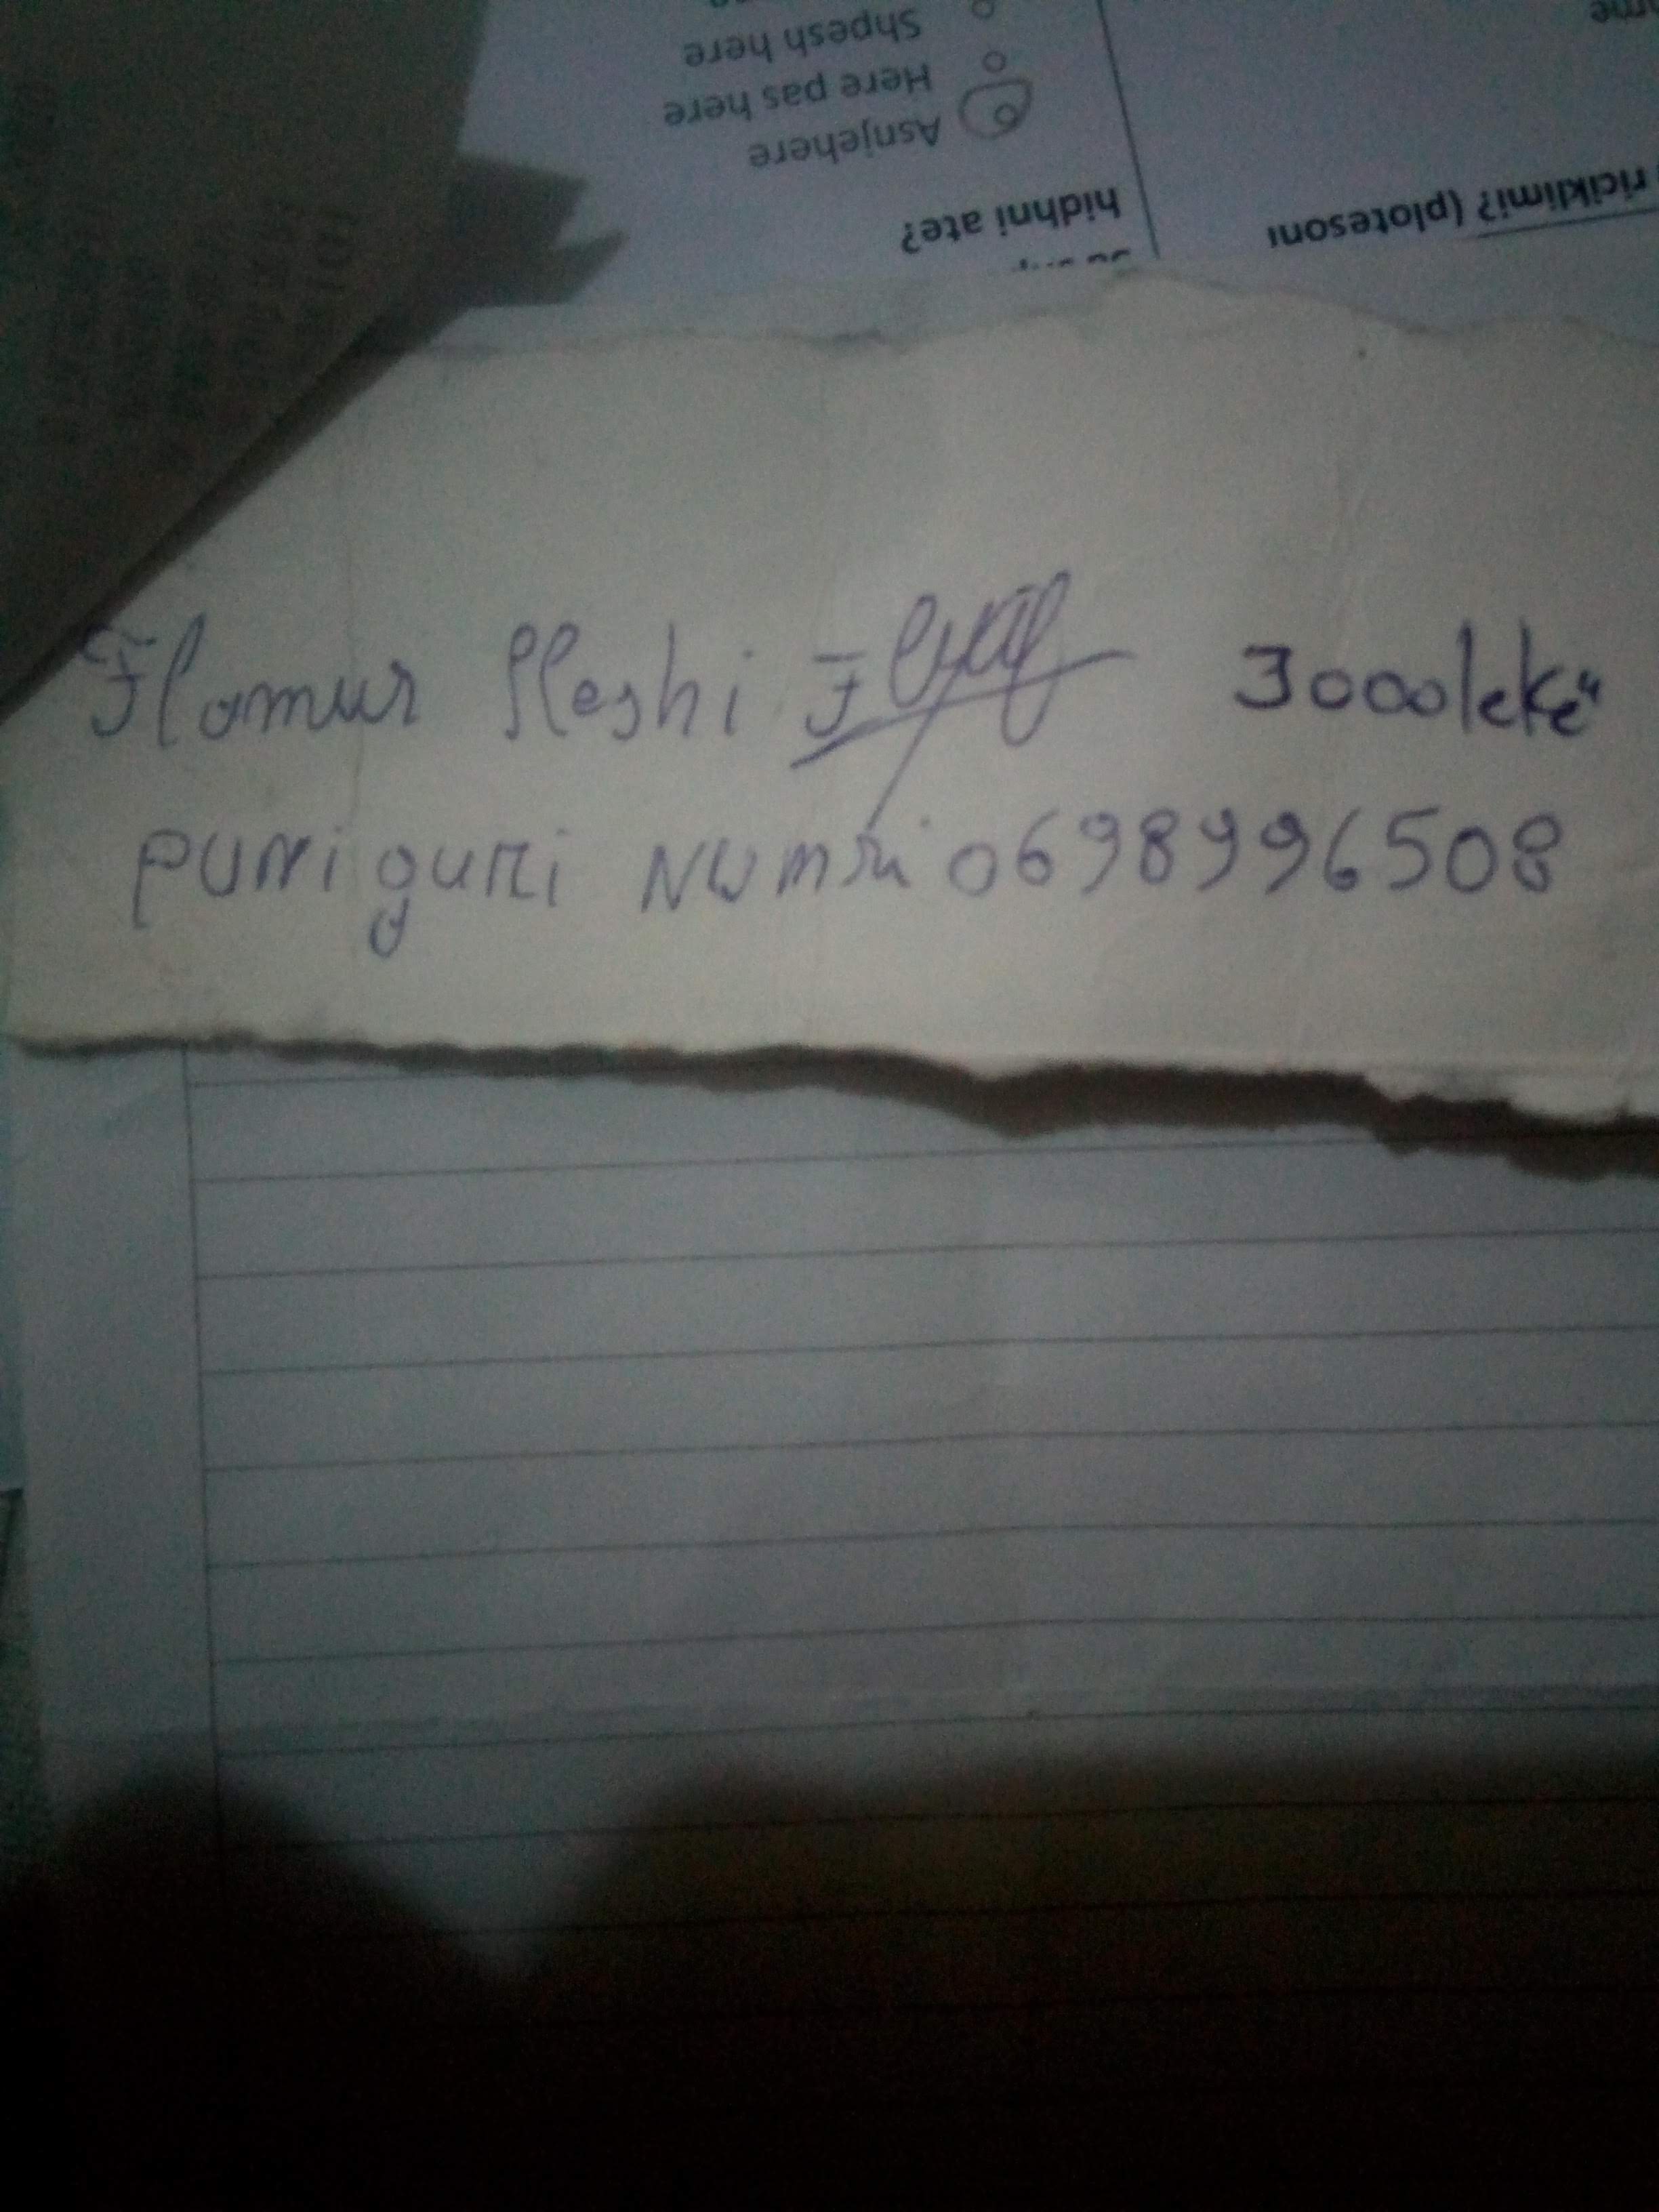 Shpesh here
Here pas here
Asnjehere
hidhni ate?
riciklimi? (plotesoni
Flamur Pleshi 3000lekë
puniguri Numri 0698996508